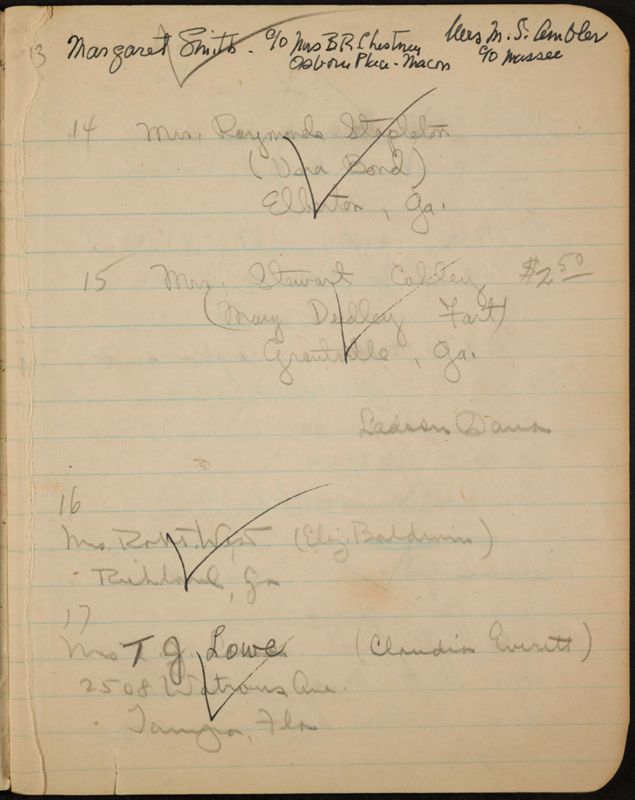 13 Margaret Smith. c/o Mrs B R Chestney
Osborn Place - Macon
Mrs M. S. Ambler
c/o Massee
14 Mrs. Raymonde Stapleton
(Vera Bond)
Elberton, Ga.
15 Mrs. Stewart Colley $2.50
(Mary Dudley Fort)
Grantville, Ga.
Ladson
16
Mrs. Robt. West (Eliz. Baldwin)
Richland, Ga
17
Mrs T J Lowe (Claudia Everett)
2508 Watrous Ave.
Tampa, Fla